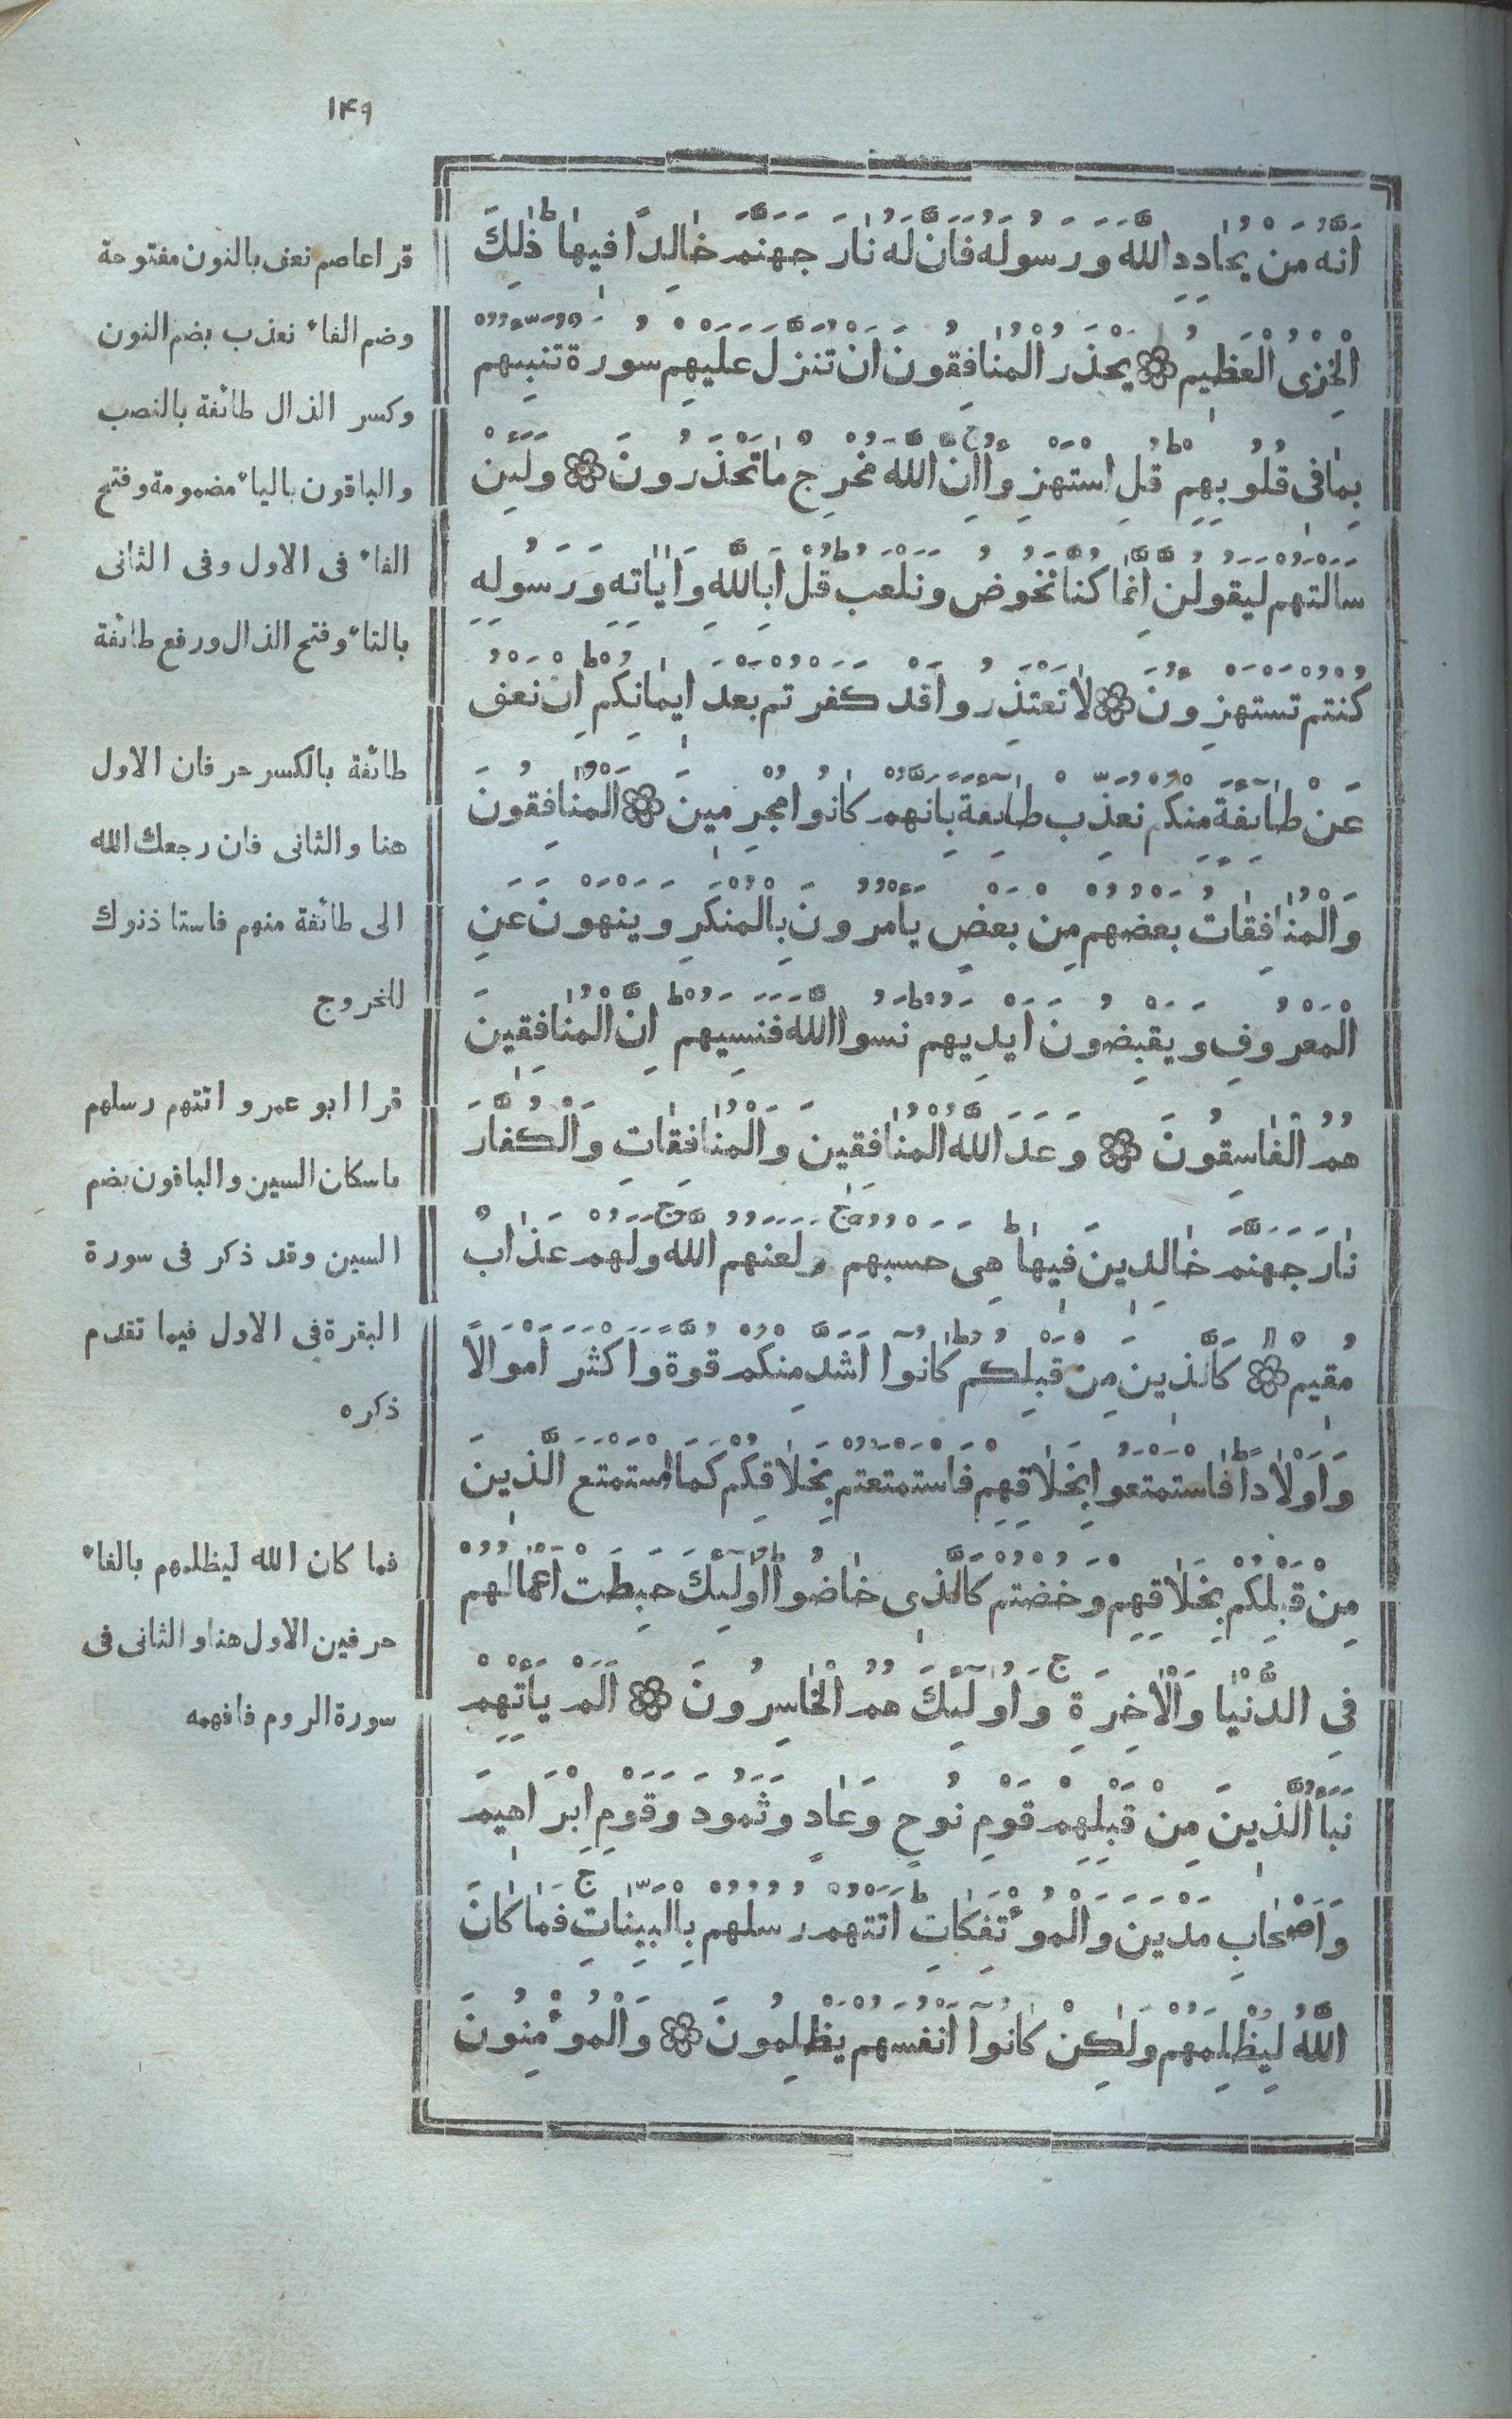 ۱۴۹
اَنَّهُ مَنْ يُحَادِدِ اللَّهَ وَرَسُولَهُ فَاَنَّ لَهُ نَارَ جَهَنَّمَ خَالِدًا فِيهَا ط ذٰلِكَ
الْخِزْىُ الْعَظِيمُ ۝ يَحْذَرُ الْمُنَافِقُونَ اَنْ تُنَزَّلَ عَلَيْهِمْ سُورَةٌ تُنَبِّئُهُمْ
بِمَا فِى قُلُوبِهِمْ ط قُلِ اسْتَهْزِءُوا ج اِنَّ اللَّهَ مُخْرِجٌ مَا تَحْذَرُونَ ۝ وَلَئِنْ
سَاَلْتَهُمْ لَيَقُولُنَّ اِنَّمَا كُنَّا نَخُوضُ وَنَلْعَبُ ط قُلْ اَبِاللَّهِ وَاٰيَاتِهِ وَرَسُولِهِ
كُنْتُمْ تَسْتَهْزِءُونَ ۝ لَا تَعْتَذِرُوا قَدْ كَفَرْتُمْ بَعْدَ اِيمَانِكُمْ ط اِنْ نَعْفُ
عَنْ طَآئِفَةٍ مِنْكُمْ نُعَذِّبْ طَآئِفَةً بِاَنَّهُمْ كَانُوا مُجْرِمِينَ ۝ اَلْمُنَافِقُونَ
وَالْمُنَافِقَاتُ بَعْضُهُمْ مِنْ بَعْضٍ يَأْمُرُونَ بِالْمُنْكَرِ وَيَنْهَوْنَ عَنِ
الْمَعْرُوفِ وَيَقْبِضُونَ اَيْدِيَهُمْ ط نَسُوا اللَّهَ فَنَسِيَهُمْ ط اِنَّ الْمُنَافِقِينَ
هُمُ الْفَاسِقُونَ ۝ وَعَدَ اللَّهُ الْمُنَافِقِينَ وَالْمُنَافِقَاتِ وَالْكُفَّارَ
نَارَ جَهَنَّمَ خَالِدِينَ فِيهَا ط هِىَ حَسْبُهُمْ ج وَلَعَنَهُمُ اللَّهُ ج وَلَهُمْ عَذَابٌ
مُقِيمٌ ۝ كَالَّذِينَ مِنْ قَبْلِكُمْ كَانُوآ اَشَدَّ مِنْكُمْ قُوَّةً وَاَكْثَرَ اَمْوَالًا
وَاَوْلَادًا ط فَاسْتَمْتَعُوا بِخَلَاقِهِمْ فَاسْتَمْتَعْتُمْ بِخَلَاقِكُمْ كَمَا اسْتَمْتَعَ الَّذِينَ
مِنْ قَبْلِكُمْ بِخَلَاقِهِمْ وَخُضْتُمْ كَالَّذِى خَاضُوا ط اُولٰٓئِكَ حَبِطَتْ اَعْمَالُهُمْ
فِى الدُّنْيَا وَالْاٰخِرَةِ ج وَاُولٰٓئِكَ هُمُ الْخَاسِرُونَ ۝ اَلَمْ يَأْتِهِمْ
نَبَأُ الَّذِينَ مِنْ قَبْلِهِمْ قَوْمِ نُوحٍ وَعَادٍ وَثَمُودَ وَقَوْمِ اِبْرَاهِيمَ
وَاَصْحَابِ مَدْيَنَ وَالْمُؤْتَفِكَاتِ ط اَتَتْهُمْ رُسُلُهُمْ بِالْبَيِّنَاتِ ج فَمَا كَانَ
اللَّهُ لِيَظْلِمَهُمْ وَلٰكِنْ كَانُوآ اَنْفُسَهُمْ يَظْلِمُونَ ۝ وَالْمُؤْمِنُونَ
قرا عاصم نعف بالنون مفتوحة
وضم الفاء نعذب بضم النون
وكسر الذال طائفة بالنصب
والباقون بالياء مضمومة وفتح
الفاء فى الاول وفى الثانى
بالتاء وفتح الذال ورفع طائفة
طائفة بالكسر حرفان الاول
هنا والثانى فان رجعك الله
الى طائفة منهم فاستاذنوك
للخروج
قرا ابو عمرو اتتهم رسلهم
باسكان السين والباقون بضم
السين وقد ذكر فى سورة
البقرة فى الاول فيما تقدم
ذكره
فما كان الله ليظلمهم بالفاء
حرفين الاول هنا والثانى فى
سورة الروم فافهمه